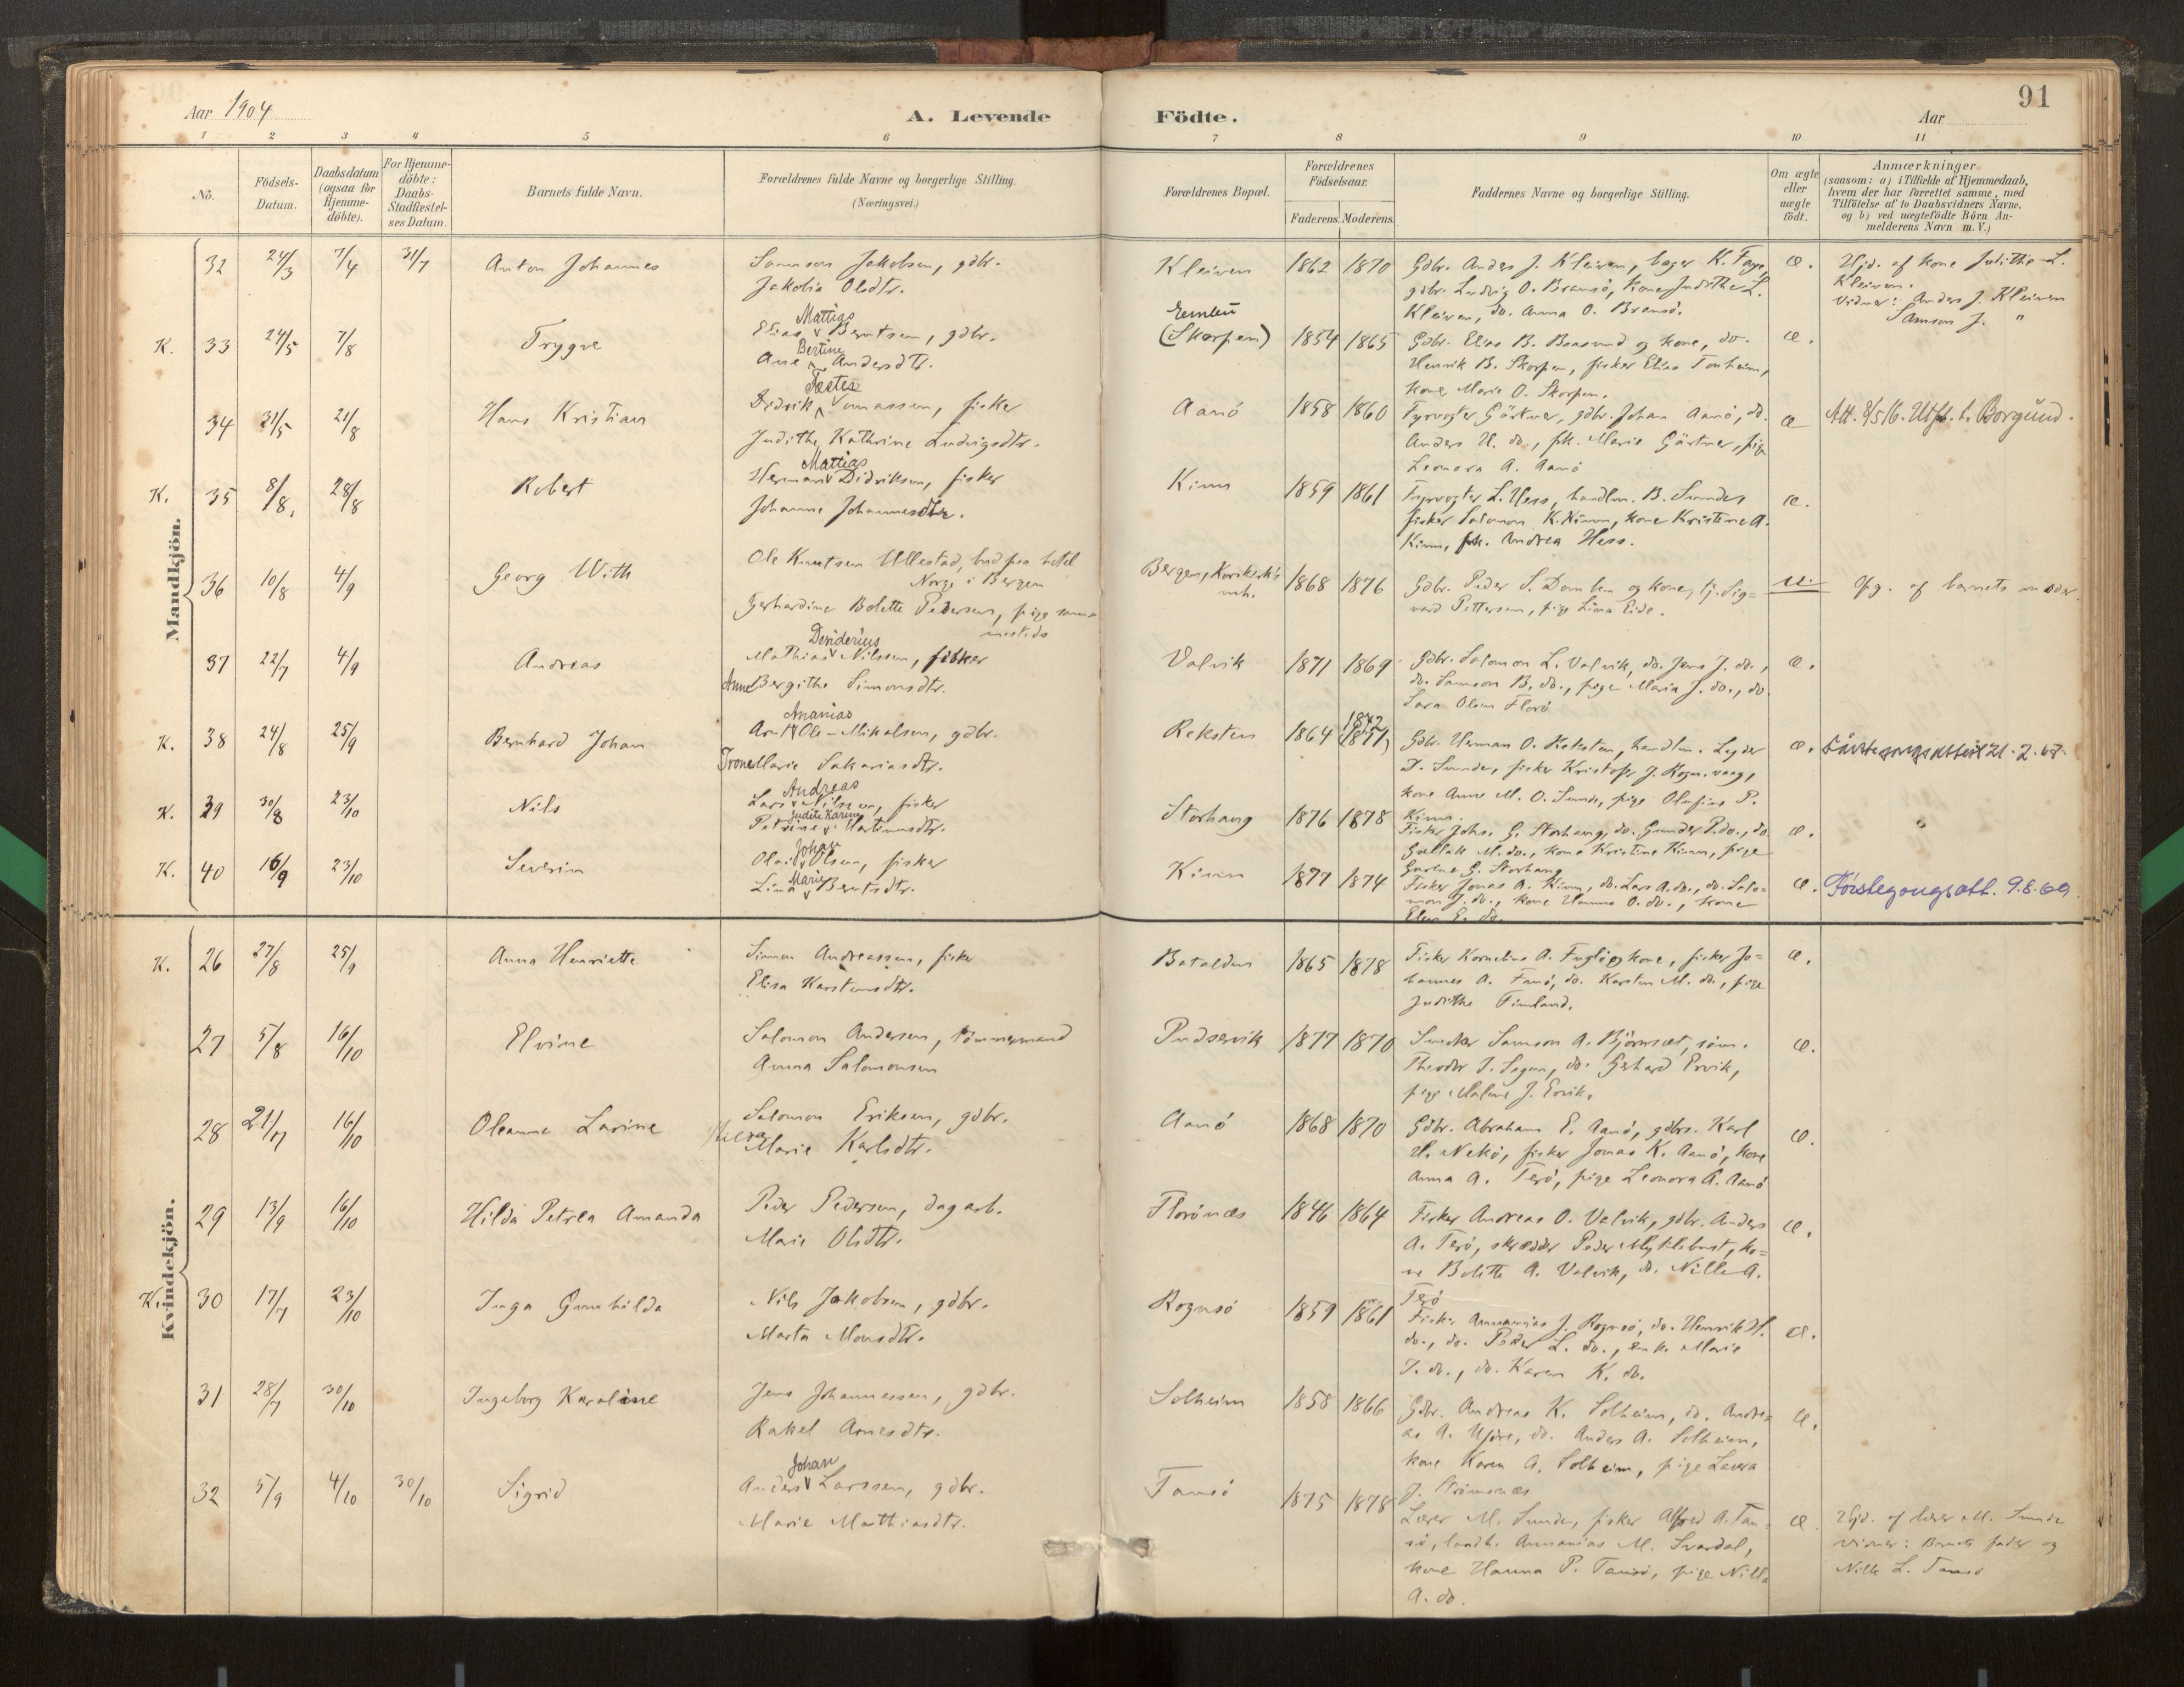 91
Aar 1904
A. Levende Födte.
Aar
1 2 3 4 5 6 7 8 9 10 11
No.
Födsels-
Datum.
Daabsdatum
(ogsaa for
Hjemme-
döbte).
For Hjemme-
döbte:
Daabs-
Stadfæstel-
ses Datum.
Barnets fulde Navn.
Forældrenes fulde Navne og borgerlige Stilling.
(Næringsvei.)
Forældrenes Bopæl.
Forældrenes
Födselsaar.
Faderens. Moderens.
Faddernes Navne og borgerlige Stilling.
Om ægte
eller
uægte
födt.
Anmærkninger
(saasom: a) i Tilfælde af Hjemmedaab,
hvem der har forrettet samme, med
Tilföielse af to Daabsvidners Navne,
og b) ved uægtefödte Börn An-
melderens Navn m. V.)
Mandkjön.
32 24/3 7/4 31/7 Anton Johannes
Samson Jakobsen, gdbr.
Jakobia Olsdtr.
Kleiven 1862 1870
Gdbr. Anders J. Kleiven, bager K. Farge,
gdbr. Ludvig O. Bransö, kone Judithe L.
Kleiven, do. Anna O. Bransö.
æ.
Hjd. af kone Judithe L.
Kleiven.
Vidner: Anders J. Kleiven
Samson J. "
K. 33 24/5 7/8 Trygve
Mattias
Elias Berntsen, gdbr.
Bertine
Ane Andersdtr.
(Skorpen) 1854 1865
Gdbr. Elias B. Brasund og kone, do.
Henrik B. Skorpen, fisker Elias Tonheim,
kone Marie O. Skorpen.
æ.
34 31/5 21/8 Hans Kristian
Didrik Tomassen, fisker
Judithe Kathrine Ludvigsdtr.
Aanö 1858 1860
Fyrvogter Gärtner, gdbr. Johan Aanö, do.
Anders H. do., fk. Marie Gärtner, pige
Leonora A. Aanö
æ
Att. 8/5 16. Utfl. t. Borgund.
K. 35 8/8 28/8 Robert
Mattias
Herman Didriksen, fisker
Johanne Johannesdtr.
Kinn 1859 1861
Fyrvogter L. Hess, handlm. B. Sunde,
fisker Salomon K. Kinn, kone Kristine A.
Kinn, fk. Andrea Hess.
æ.
36 10/8 4/9 Georg With
Ole Knutsen Ullestad, bud paa hotel
Norge i Bergen
Gerhardine Bolette Pedersen, pige sam-
mesteds
Bergen, Korskirk's
mh. 1868 1876
Gdbr. Peder S. Domben og kone, tj. Sig-
vard Pettersen, pige Lina Eide.
u.
Opg. af barnets moder.
37 22/7 4/9 Andreas
Desiderius
Mathias Nilssen, fisker
Anne Bergithe Simonsdtr.
Valvik 1871 1869
Gdbr. Salomon L. Valvik, do. Jens J. do.,
do. Samson B. do., pige Maria J. do., do.
Sara Olsen Florö
æ.
K. 38 24/8 25/9 Bernhard Johan
Ananias
Arnt Ole Mikalsen, gdbr.
Trone Marie Sakariasdtr.
Reksten 1864 1872 (1871)
Gdbr. Herman O. Reksten, handlm. Leger
D. Sunde, fisker Kristofer J. Rogn.vaag,
kone Anne M. O. Sunde, pige Olufine P.
Kinn.
æ.
Förstegangsattest 21.2.67.
K. 39 30/8 23/10 Nils
Andreas
Lars Nilssen, fisker
Judite Karine
Petrine Martinusdtr.
Storhaug 1876 1878
Fisker Johs. G. Storhaug, do. Gunder P. do., do.
Gullak M. do., kone Kristine Kinn, pige
Gurine G. Storhaug
æ.
K. 40 16/9 23/10 Severin
Johan
Olai Olsen, fisker
Marie
Lina Berntsdtr.
Kinn 1877 1874
Fisker Jonas A. Kinn, do. Lars A. do., do. Salo-
mon J. do., kone Hanna O. do., kone
Elen E. do.
æ.
Förstegongsatt. 9.8.69.
Kvindekjön.
K. 26 27/8 25/9 Anna Henriette
Simon Andreassen, fisker
Elisa Karstensdtr.
Batalden 1865 1878
Fisker Kornelius A. Fuglö og kone, fisker Jo-
hannes A. Fanö, do. Karsten M. do., pige
Judithe Fimland.
æ.
27 5/8 16/10 Elvine
Salomon Andersen, tömmermand
Anna Salomonsen
Pudservik 1877 1870
Snedker Samson A. Björnset, sönn.
Theodor S. Sagen, do. Gerhard Ervik,
pige Malene J. Ervik.
æ.
28 21/7 16/10 Oleanne Larine
Salomon Eriksen, gdbr.
Marie Karlsdtr.
Aanö 1868 1870
Gdbr. Abraham E. Aanö, gdbrs. Karl
H. Nekö, fisker Jonas K. Aanö, kone
Anna A. Terö, pige Leonora A. Aanö
æ.
29 13/9 16/10 Hilda Petrea Amanda
Peder Pedersen, dagarb.
Marie Olsdtr.
Florönæs 1846 1864
Fisker Andreas O. Valvik, gdbr. Anders
A. Terö, skrædder Peder Myklebust, ko-
ne Bolette A. Valvik, do. Nille A.
Terö
æ.
K. 30 17/7 23/10 Inga Gunhilda
Nils Jakobsen, gdbr.
Marta Monsdtr.
Rognsö 1859 1861
Fisker Annanias J. Rognsö, do. Henrik H.
do., do. Peder L. do., enk. Marie
J. do., do. Karen K. do.
æ.
31 28/7 30/10 Ingeborg Karoline
Jens Johannessen, gdbr.
Rakel Arnesdtr.
Solheim 1858 1866
Gdbr. Andreas K. Solheim, do. Andre-
as A. Ufdre, do. Anders A. Solheim,
kone Karen A. Solheim, pige Laura
J. Strömsnæs
æ.
32 5/9 4/10 30/10 Sigrid
Johan
Anders Larssen, gdbr.
Marie Mathiasdtr.
Tansö 1875 1878
Lærer M. Sunde, fisker Alfred A. Tan-
sö, landh. Annanias M. Svardal,
kone Hanna P. Tansö, pige Nille
A. do.
æ.
Hjd. af lærer M. Sunde
Vidner: Barnets fader og
Nille L. Tansö